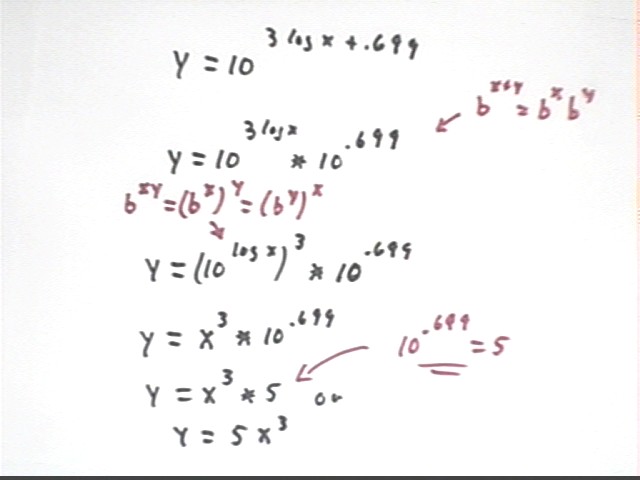 y = 10^(3 log x + .699)
b^(x+y) = b^x b^y
y = 10^(3 log x) * 10^(.699)
b^(xy) = (b^x)^y = (b^y)^x
y = (10^(log x))^3 * 10^(.699)
y = x^3 * 10^(.699)
10^(.699) = 5
y = x^3 * 5 or
y = 5x^3